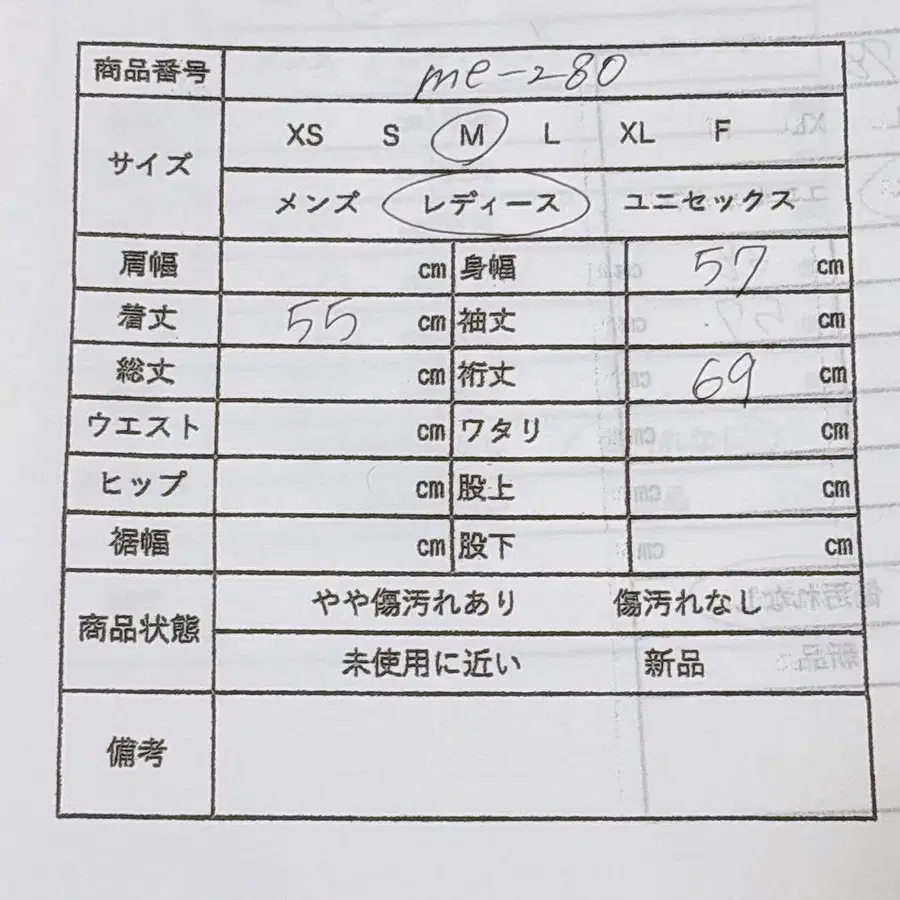 商品番号 me-280
サイズ XS S M L XL F
メンズ レディース ユニセックス
肩幅 cm 身幅 57 cm
着丈 55 cm 袖丈 cm
総丈 cm 裄丈 69 cm
ウエスト cm ワタリ cm
ヒップ cm 股上 cm
裾幅 cm 股下 cm
商品状態 やや傷汚れあり 傷汚れなし
未使用に近い 新品
備考